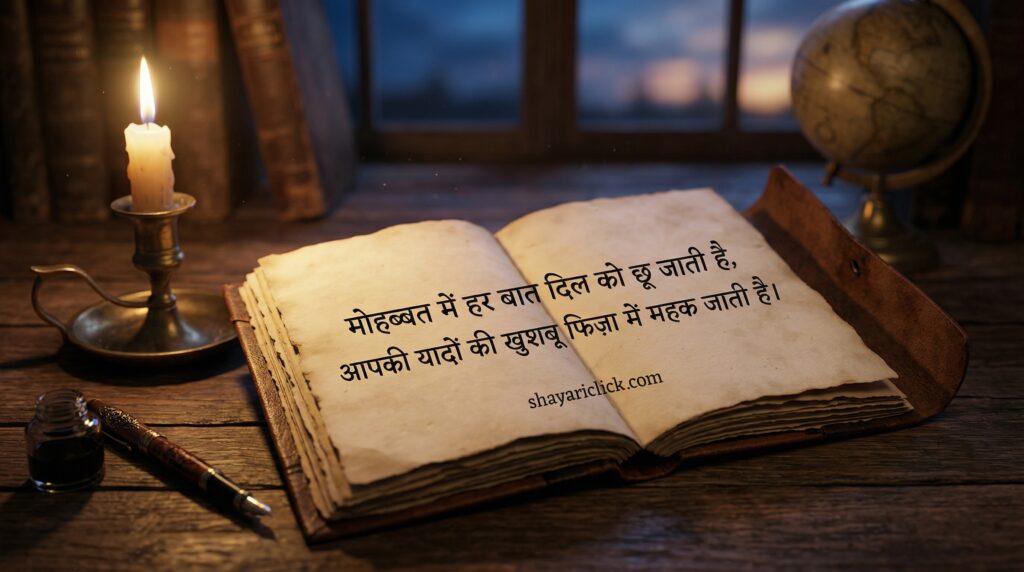 मोहब्बत में हर बात दिल को छू जाती है,
आपकी यादों की खुशबू फिज़ा में महक जाती है।
shayariclick.com